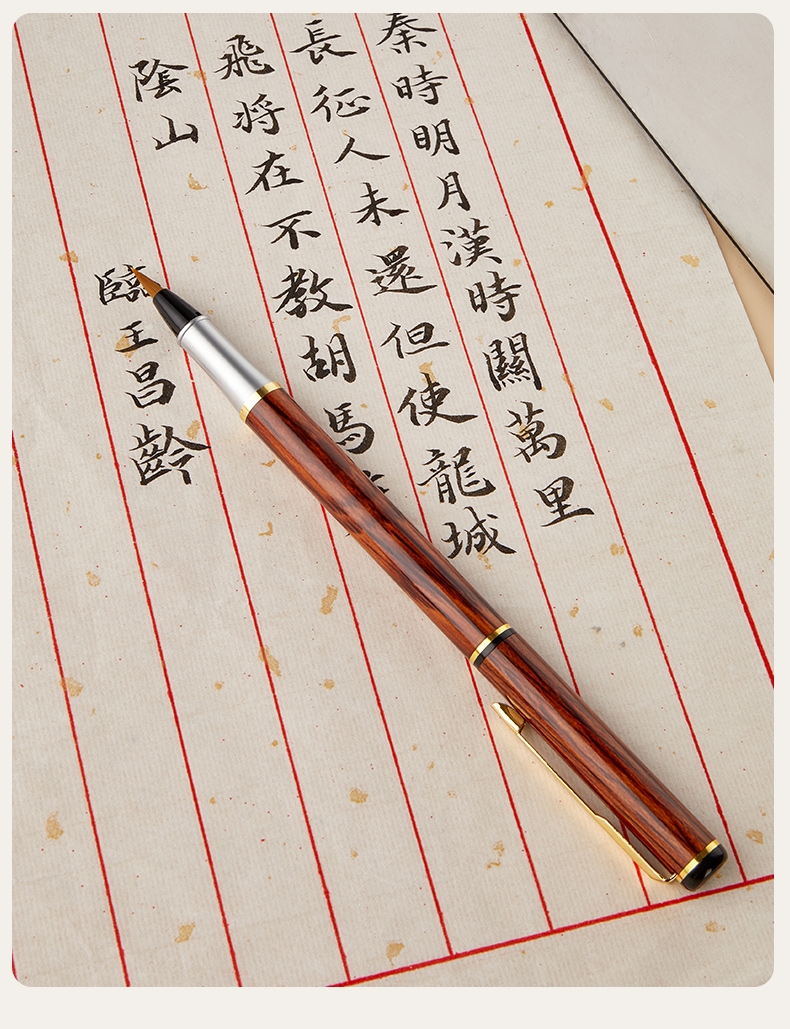 秦時明月漢時關萬里
長征人未還但使龍城
飛将在不教胡馬
陰山
臨王昌齡